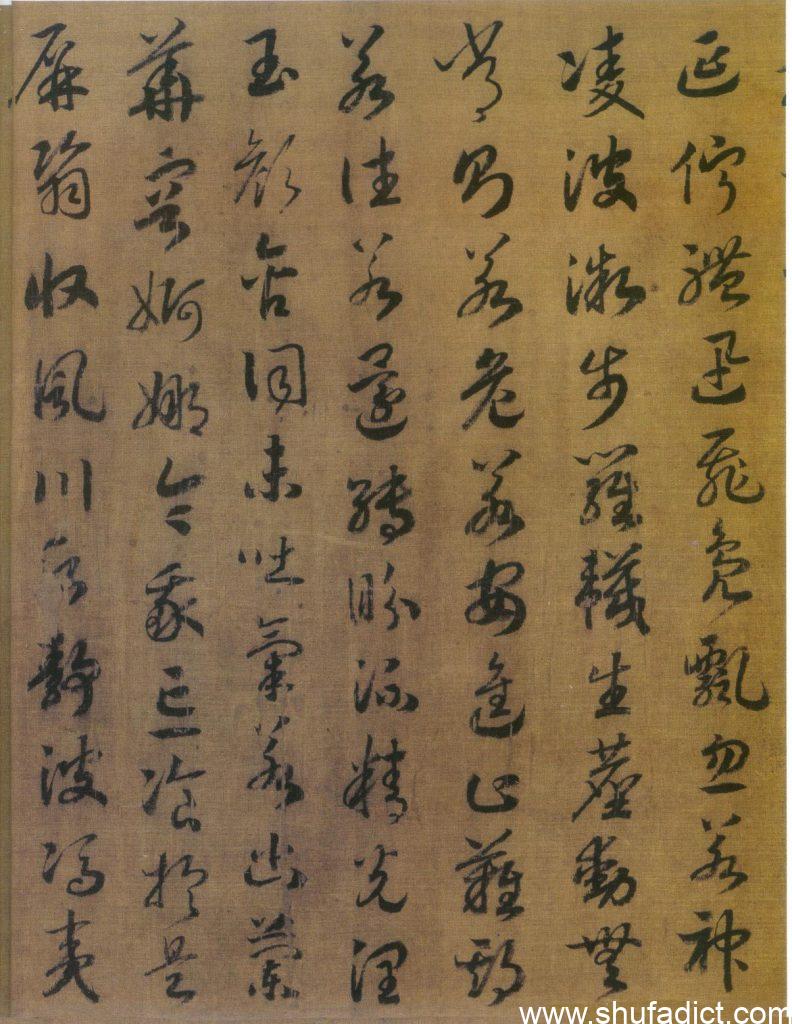 延佇體迅飛鳧飄忽若神
凌波微步羅韈生塵動無
常則若危若安進止難期
若往若還轉眄流精光潤
玉顏含詞未吐氣若幽蘭
華容婀娜令我忘飡於是
屏翳收風川后靜波馮夷
www.shufadict.com